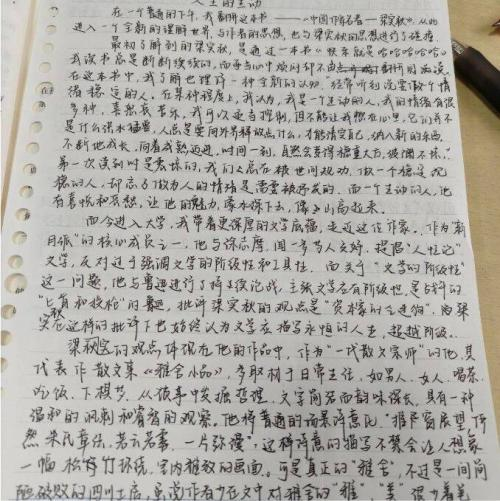 人生的生动
在一个普通的下午，我翻开这本书——《中国作家名者—梁实秋》，从此
进入一个全新的理解世界，与作者的思想，也与梁实秋的思想进行了碰撞。
最初了解到的梁实秋，是通过一本书《快乐就是哈哈哈哈哈》
我读书总是断断续续的，而每当心中烦闷却不由翻开时而读。
在这本书中，我了解也理解一种全新的认知，"经常听到说要做个情
绪稳定的人，在某种程度上，我认为，我是一个生动的人，我的情绪有很
多种，喜怒哀苦乐，我可以适当控制，但不能让我憋在心里，它们并不
是什么洪水猛兽，人总是要向外界释放点什么，才能清空自己，纳入新的东西
不断地成长，向着成熟迈进，时间一到，自然会变得稳重大方，波澜不惊。"
第一次读到时是震惊的，我们人总在被世间规劝，做一个稳定沉
稳的人，却忘了做为人的情绪是需要被释放的。而一个生动的人，他
有喜悦和哀愁，让他的魅力，
而今进入大学，我带着更深厚的文学底蕴，走近这位作家。作为"新
月派"的核心成员之一，他与徐志摩、闻一多等人交好，提倡"人性论"
文学，反对过于强调文学的阶级性和工具性。而关于"文学的阶级性"
这一问题，他与鲁迅进行了论战，主张文学应有阶级性，是战斗的
"匕首和投枪"的鲁迅，批评梁实秋的观点是"资本的乏走狗"，而梁
实秋在这样的批评下也始终认为文学应描写永恒的人性，超越阶级。
梁实秋的观点体现在他的作品中，作为"一代散文宗师"的他，其
代表作散文集《雅舍小品》，多取材于日常生活，如男人、女人、喝茶、
吃饭、下棋等，从琐事中发掘哲理，文字简洁而韵味悠长，具有一种
温和的讽刺和睿智的观察。他将普通的场景诗意化，"推户窗展望，俨
然米氏章法，若云若雾，一片弥漫"，这种诗意的描写不禁会让人想象
一幅松竹环绕，室内雅致的画面。可是真正的"雅舍"，不过是一间简
陋破败的四川土房，虽说作者在文中对雅舍的"雅""美"